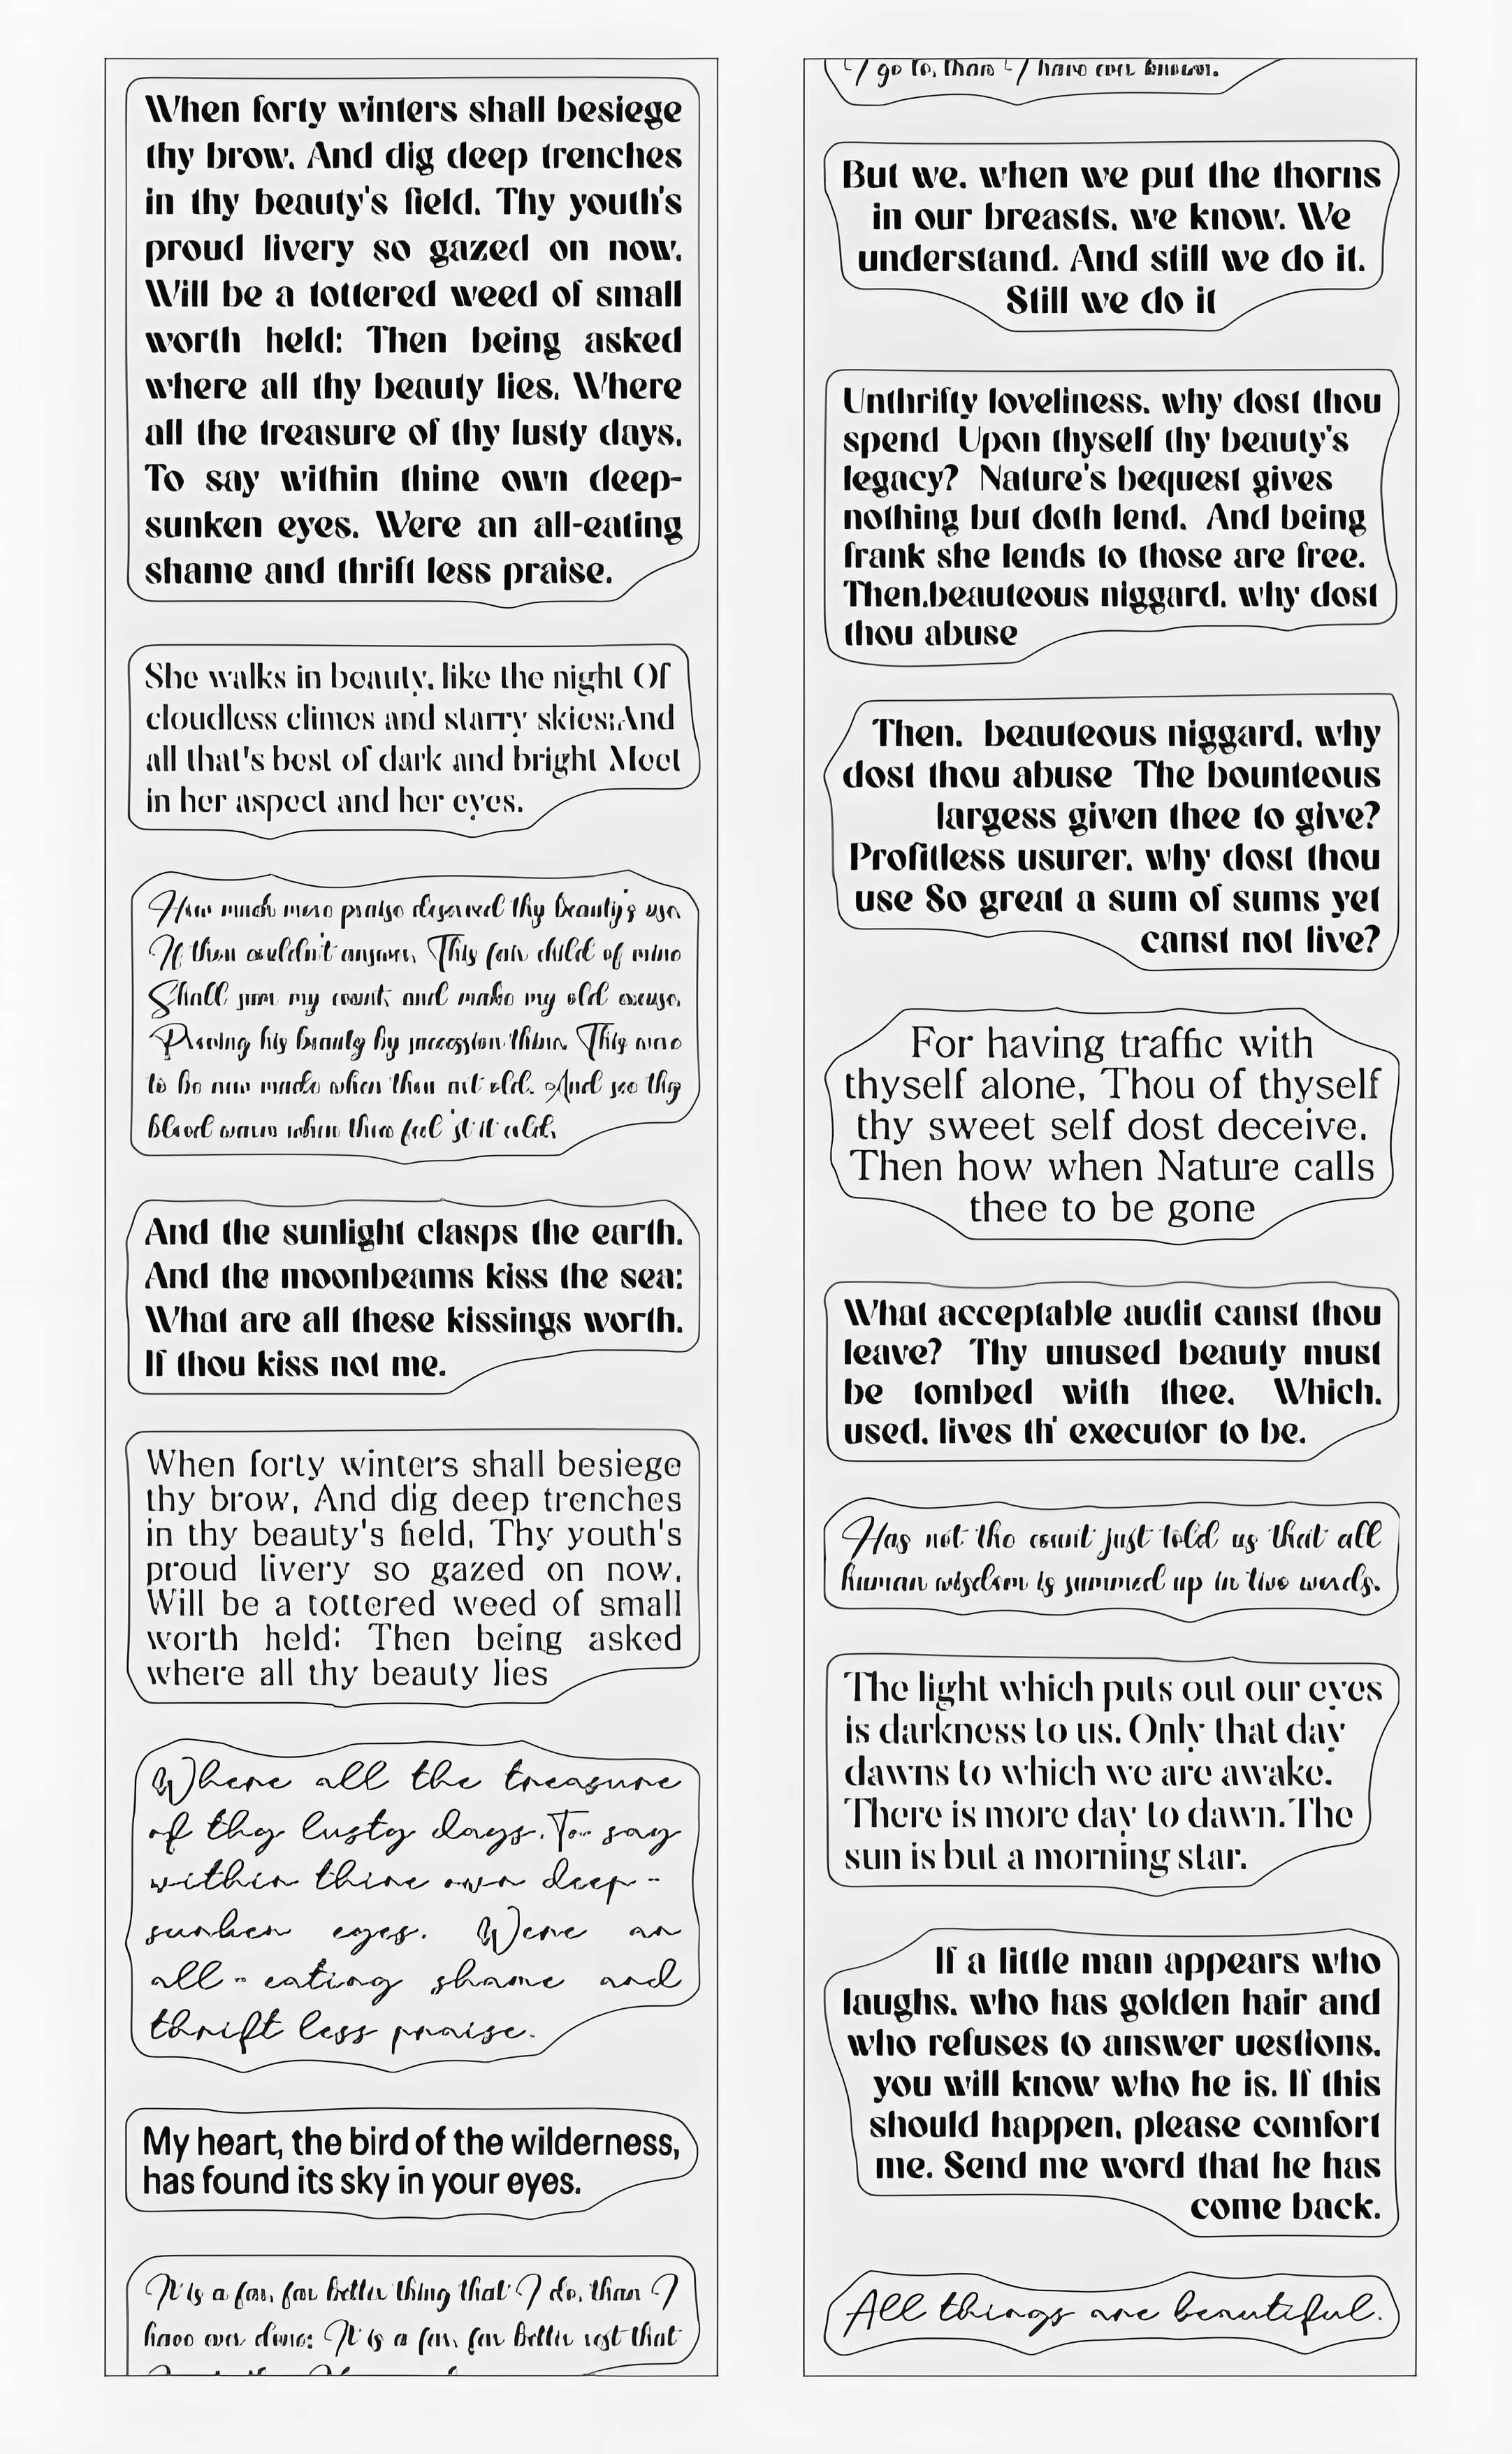 When forty winters shall besiege
thy brow, And dig deep trenches
in thy beauty's field, Thy youth's
proud livery so gazed on now,
Will be a tottered weed of small
worth held: Then being asked
where all thy beauty lies, Where
all the treasure of thy lusty days,
To say within thine own deep-
sunken eyes, Were an all-eating
shame and thrift less praise.
She walks in beauty, like the night Of
cloudless climes and starry skies;And
all that's best of dark and bright Meet
in her aspect and her eyes.
How much more praise deserved thy beauty's use,
If thou couldn't answer, This fair child of mine
Shall sum my count, and make my old excuse,
Proving his beauty by succession thine. This were
to be new made when thou art old. And see thy
blood warm when thou feel'st it cold.
And the sunlight clasps the earth,
And the moonbeams kiss the sea:
What are all these kissings worth,
If thou kiss not me.
When forty winters shall besiege
thy brow, And dig deep trenches
in thy beauty's field, Thy youth's
proud livery so gazed on now,
Will be a tottered weed of small
worth held: Then being asked
where all thy beauty lies
Where all the treasure
of thy lusty days. To say
within thine own deep-
sunken eyes. Were an
all-eating shame and
thrift less praise.
My heart, the bird of the wilderness,
has found its sky in your eyes.
It is a far, far better thing that I do, than I
have ever done: It is a far, far better rest that
I go to, than I have ever known.
But we, when we put the thorns
in our breasts, we know. We
understand. And still we do it.
Still we do it
Unthrifty loveliness, why dost thou
spend Upon thyself thy beauty's
legacy? Nature's bequest gives
nothing but doth lend, And being
frank she lends to those are free.
Then,beauteous niggard, why dost
thou abuse
Then, beauteous niggard, why
dost thou abuse The bounteous
largess given thee to give?
Profitless usurer, why dost thou
use So great a sum of sums yet
canst not live?
For having traffic with
thyself alone, Thou of thyself
thy sweet self dost deceive,
Then how when Nature calls
thee to be gone
What acceptable audit canst thou
leave? Thy unused beauty must
be tombed with thee, Which,
used, lives th' executor to be.
Has not the count just told us that all
human wisdom is summed up in two words.
The light which puts out our eyes
is darkness to us. Only that day
dawns to which we are awake.
There is more day to dawn.The
sun is but a morning star.
If a little man appears who
laughs, who has golden hair and
who refuses to answer uestions,
you will know who he is. If this
should happen, please comfort
me. Send me word that he has
come back.
All things are beautiful.